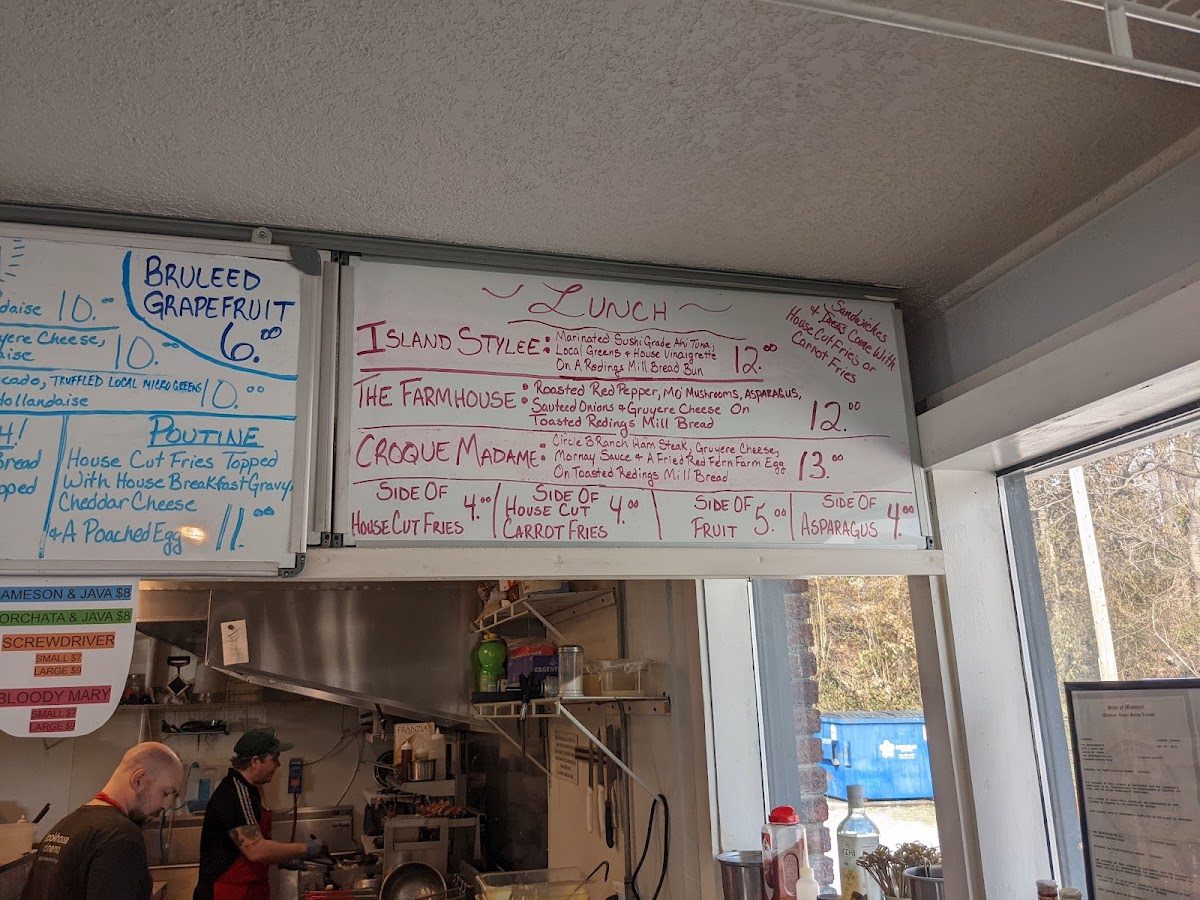 BRULEED
GRAPEFRUIT
6.00
daise 10.00
yere Cheese,
aise 10.00
cado, TRUFFLED LOCAL MICRO GREENS 10.00
Hollandaise
H!
Bread
pped
POUTINE
House Cut Fries Topped
With House Breakfast Gravy,
Cheddar Cheese
& A Poached Egg 11.00
LUNCH
Sandwiches
& Come With
House Cut Fries or
Carrot Fries
ISLAND STYLEE: Marinated Sushi Grade Ahi Tuna,
Local Greens & House Vinaigrette
On A Redings Mill Bread Bun 12.00
THE FARMHOUSE: Roasted Red Pepper, Mo' Mushrooms, ASPARAGUS,
Sauteed Onions & Gruyere Cheese On
Toasted Redings Mill Bread 12.00
CROQUE MADAME: Circle B Ranch Ham Steak, Gruyere Cheese,
Mornay Sauce & A Fried Red Fern Farm Egg
On Toasted Redings Mill Bread 13.00
SIDE OF
HOUSE CUT FRIES 4.00
SIDE OF
HOUSE CUT
CARROT FRIES 4.00
SIDE OF
FRUIT 5.00
SIDE OF
ASPARAGUS 4.00
JAMESON & JAVA $8
ORCHATA & JAVA $8
SCREWDRIVER
SMALL $7
LARGE $9
BLOODY MARY
SMALL $7
LARGE $9
FRANZIA
ESSENT
State of Missouri